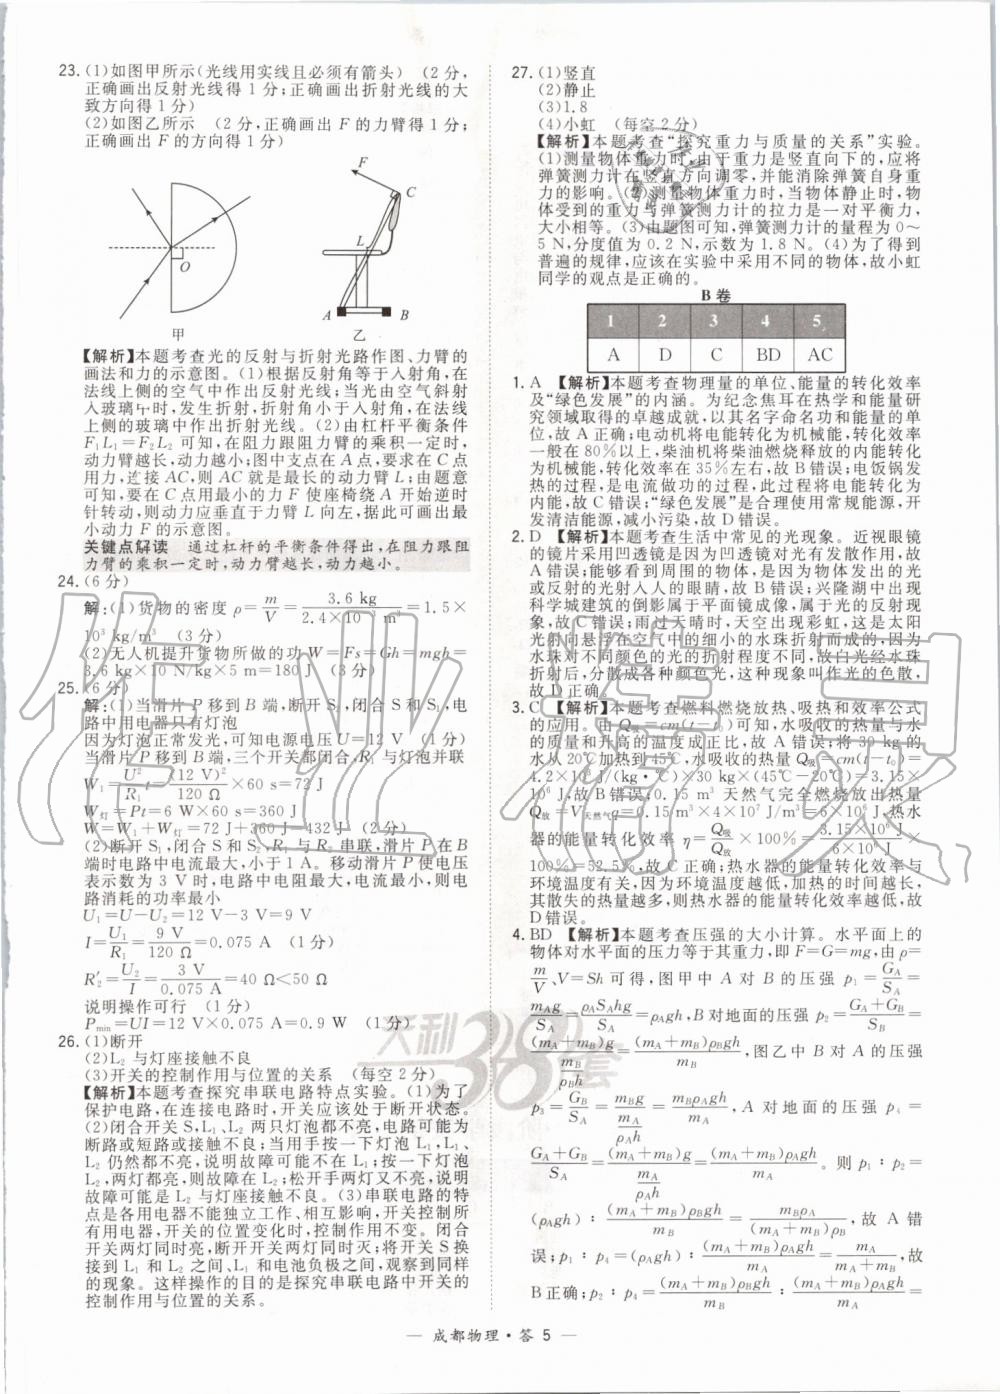 23. (1)如图甲所示(光线用实线且必须有箭头) (2分,
正确画出反射光线得1分;正确画出折射光线的大
致方向得1分)
(2)如图乙所示 (2分,正确画出F的力臂得1分;
正确画出F的方向得1分)
O
甲
F
C
L
A
B
乙
【解析】本题考查光的反射与折射光路作图、力臂的
画法和力的示意图。(1)根据反射角等于入射角,在
法线上侧的空气中作出反射光线;当光由空气斜射
入玻璃中时,发生折射,折射角小于入射角,在法线
上侧的玻璃中作出折射光线。(2)由杠杆平衡条件
F₁L₁=F₂L₂可知,在阻力跟阻力臂的乘积一定时,
动力臂越长,动力越小;图中支点在A点,要求在C点
用力,连接AC,则AC就是最长的动力臂L;由题意
可知,要在C点用最小的力F使座椅绕A开始逆时
针转动,则动力应垂直于力臂L向左,据此可画出最
小动力F的示意图。
关键点解读 通过杠杆的平衡条件得出,在阻力跟阻
力臂的乘积一定时,动力臂越长,动力越小。
24. (6分)
解:(1)货物的密度ρ=m/V=3.6 kg/2.4×10⁻³ m³=1.5×
10³ kg/m³ (3分)
(2)无人机提升货物所做的功W=Fs=Gh=mgh=
3.6 kg×10 N/kg×5 m=180 J (3分)
25. (6分)
解:(1)当滑片P移到B端,断开S₁,闭合S和S₂,电
路中用电器只有灯泡
因为灯泡正常发光,可知电源电压U=12 V (1分)
当滑片P移到B端,三个开关都闭合,R₁与灯泡并联
W₁=U²/R₁ t=(12 V)²/120 Ω×60 s=72 J
W灯=Pt=6 W×60 s=360 J
W=W₁+W灯=72 J+360 J=432 J (2分)
(2)断开S₁,闭合S和S₂,R₁与R₂串联,滑片P在B
端时电路中电流最大,小于1 A。移动滑片P使电压
表示数为3 V时,电路中电阻最大,电流最小,则电
路消耗的功率最小
U₁=U-U₂=12 V-3 V=9 V
I=U₁/R₁=9 V/120 Ω=0.075 A (1分)
R₂′=U₂/I=3 V/0.075 A=40 Ω<50 Ω
说明操作可行 (1分)
Pmin=UI=12 V×0.075 A=0.9 W (1分)
26. (1)断开
(2)L₂与灯座接触不良
(3)开关的控制作用与位置的关系 (每空2分)
【解析】本题考查探究串联电路特点实验。(1)为了
保护电路,在连接电路时,开关应该处于断开状态。
(2)闭合开关S,L₁、L₂两只灯泡都不亮,电路可能为
断路或短路或接触不良;当用手按一下灯泡L₁,L₁、
L₂仍然都不亮,说明故障可能不在L₁;按一下灯泡
L₂,两灯都亮,则故障在L₂;松开手两灯又不亮,说明
故障可能是L₂与灯座接触不良。(3)串联电路的特
点是各用电器不能独立工作、相互影响,开关控制所
有用电器,开关的位置变化时,控制作用不变。闭合
开关两灯同时亮,断开开关两灯同时灭;将开关S换
接到L₁和L₂之间、L₁和电池负极之间,观察到同样
的现象。这样操作的目的是探究串联电路中开关的
控制作用与位置的关系。
27. (1)竖直
(2)静止
(3)1.8
(4)小虹 (每空2分)
【解析】本题考查“探究重力与质量的关系”实验。
(1)测量物体重力时,由于重力是竖直向下的,应将
弹簧测力计在竖直方向调零,并能消除弹簧自身重
力的影响。(2)测量物体重力时,当物体静止时,物
体受到的重力与弹簧测力计的拉力是一对平衡力,
大小相等。(3)由题图可知,弹簧测力计的量程为0~
5 N,分度值为0.2 N,示数为1.8 N。(4)为了得到
普遍的规律,应该在实验中采用不同的物体,故小虹
同学的观点是正确的。
B卷
1 2 3 4 5
A D C BD AC
1. A 【解析】本题考查物理量的单位、能量的转化效率
及“绿色发展”的内涵。为纪念焦耳在热学和能量研
究领域取得的卓越成就,以其名字命名功和能量的单
位,故A正确;电动机将电能转化为机械能,转化效率
一般在80%以上,柴油机将柴油燃烧释放的内能转化
为机械能,转化效率在35%左右,故B错误;电饭锅发
热的过程,是电流做功的过程,此过程将电能转化为
内能,故C错误;“绿色发展”是合理使用常规能源,开
发清洁能源,减小污染,故D错误。
2. D 【解析】本题考查生活中常见的光现象。近视眼镜
的镜片采用凹透镜是因为凹透镜对光有发散作用,故
A错误;能够看到周围的物体,是因为物体发出的光
或反射的光射入人的眼睛,故B错误;兴隆湖中出现
科学城建筑的倒影属于平面镜成像,属于光的反射现
象,故C错误;雨过天晴时,天空出现彩虹,这是太阳
光射向悬浮在空气中的细小的水珠折射而成的,因为
水珠对不同颜色的光的折射程度不同,故白光经水珠
折射后,分散成各种颜色光,这种现象叫作光的色散,
故D正确。
3. C 【解析】本题考查燃料燃烧放热、吸热和效率公式
的应用。由Q吸=cm(t-t₀)可知,水吸收的热量与水
的质量和升高的温度成正比,故A错误;将30 kg的
水从20℃加热到45℃,水吸收的热量Q吸=cm(t-t₀)=
4.2×10³ J/(kg·℃)×30 kg×(45℃-20℃)=3.15×
10⁶ J,故B错误;0.15 m³天然气完全燃烧放出热量
Q放=V天然气q=0.15 m³×4×10⁷ J/m³=6×10⁶ J,热水
器的能量转化效率η=Q吸/Q放×100%=3.15×10⁶ J/6×10⁶ J×
100%=52.5%,故C正确;热水器的能量转化效率与
环境温度有关,因为环境温度越低,加热的时间越长,
其散失的热量越多,则热水器的能量转化效率越低,故
D错误。
4. BD 【解析】本题考查压强的大小计算。水平面上的
物体对水平面的压力等于其重力,即F=G=mg,由ρ=
m/V、V=Sh可得,图甲中A对B的压强p₁=G_A/S_A=
m_Ag/S_A=ρ_AS_Ahg/S_A=ρ_Agh,B对地面的压强p₂=(G_A+G_B)/S_B=
(m_A+m_B)g/(m_B/ρ_Bh)=(m_A+m_B)ρ_Bgh/m_B,图乙中B对A的压强
p₃=G_B/S_A=m_Bg/(m_A/ρ_Ah)=m_Bρ_Agh/m_A,A对地面的压强p₄=
(G_A+G_B)/S_A=(m_A+m_B)g/(m_A/ρ_Ah)=(m_A+m_B)ρ_Agh/m_A。则p₁∶p₂=
(ρ_Agh)∶(m_A+m_B)ρ_Bgh/m_B=m_Bρ_A/(m_A+m_B)ρ_B,故A错
误;p₁∶p₄=(ρ_Agh)∶(m_A+m_B)ρ_Agh/m_A=m_A/(m_A+m_B),故
B正确;p₂∶p₄=(m_A+m_B)ρ_Bgh/m_B∶(m_A+m_B)ρ_Agh/m_A=
天利38套
作业精灵
— 成都物理·答 5 —